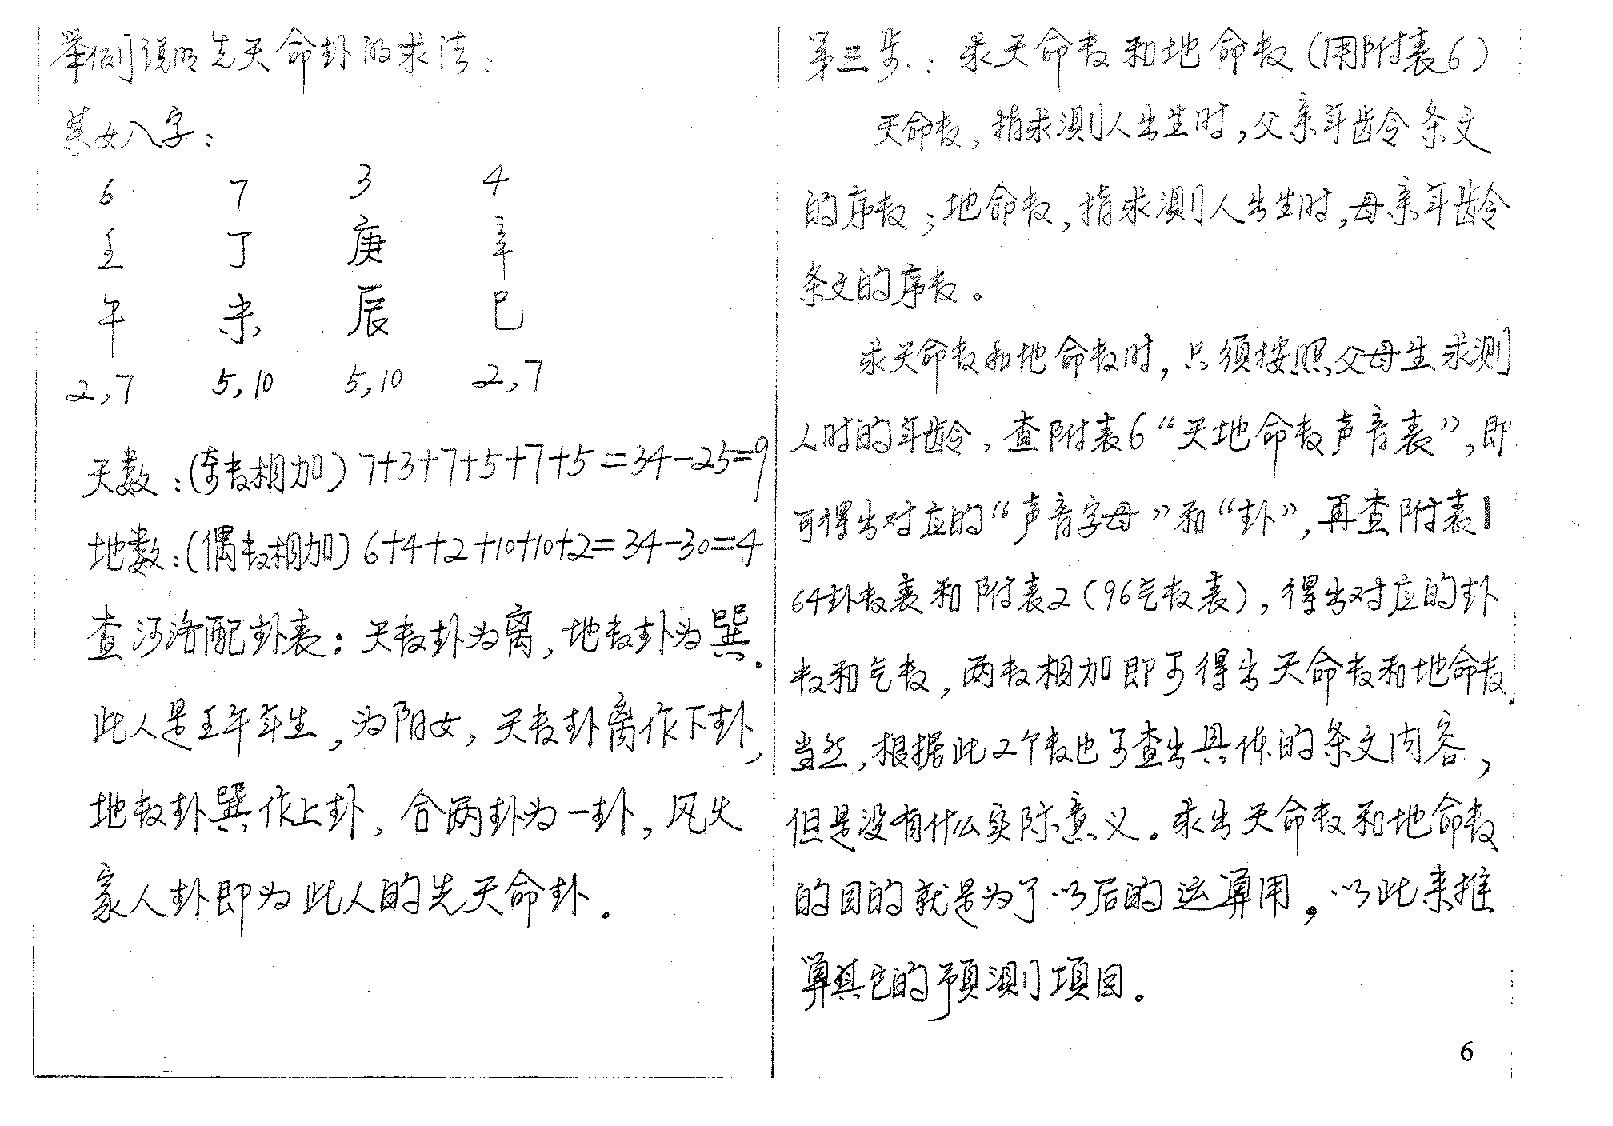 举例说明先天命卦的求法：
某女八字：
6 7 3 4
壬 丁 庚 辛
午 未 辰 巳
2,7 5,10 5,10 2,7
天数：(奇数相加) 7+3+7+5+7+5=34-25=9
地数：(偶数相加) 6+4+2+10+10+2=34-30=4
查河洛配卦表：天数卦为离，地数卦为巽。
此人是壬午年生，为阳女，天数卦离作下卦，
地数卦巽作上卦，合两卦为一卦，风火
家人卦即为此人的先天命卦。
第三步：求天命数和地命数(用附表6)
天命数，指求测人出生时，父亲年龄条文
的序数；地命数，指求测人出生时，母亲年龄
条文的序数。
求天命数和地命数时，只须按照父母生求测
人时的年龄，查附表6“天地命数声音表”，即
可得出对应的“声音字母”和“卦”，再查附表1
64卦数表和附表2(96气数表)，得出对应的卦
数和气数，两数相加即可得出天命数和地命数。
当然，根据此2个数也可查出具体的条文内容，
但是没有什么实际意义。求出天命数和地命数
的目的就是为了以后的运算用，以此来推
算其它的预测项目。
6